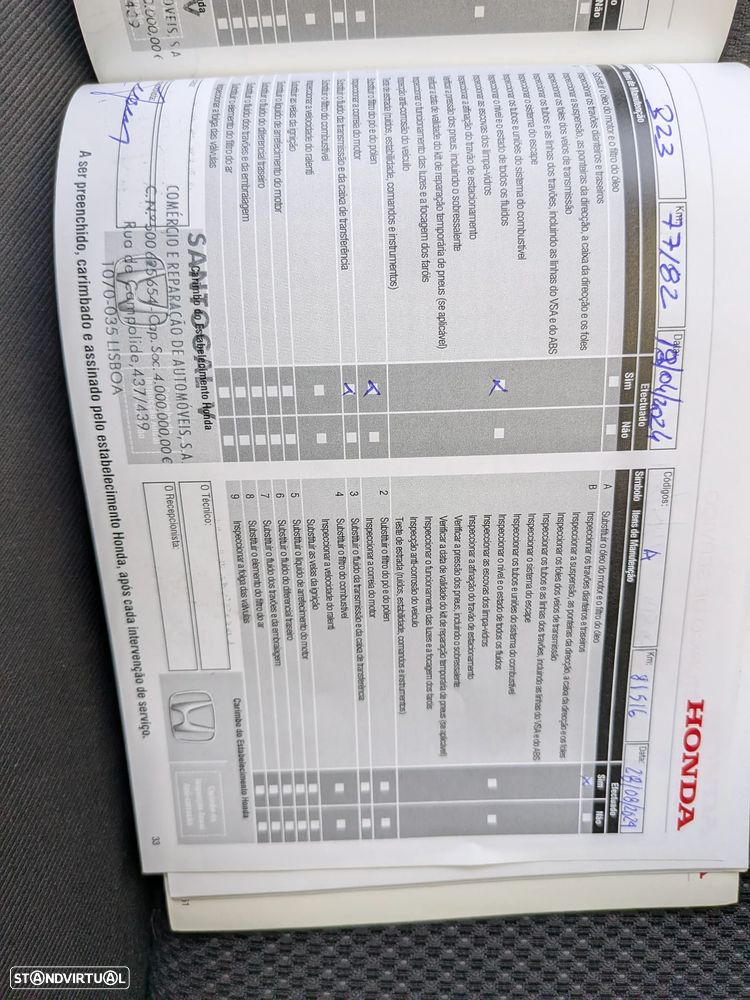 HONDA
B23
Km:
77182
Data:
18/04/2024
Itens de Manutenção
Efectuado
Sim
Não
Substituir o óleo do motor e o filtro do óleo
Inspeccionar os travões dianteiros e traseiros
Inspeccionar a suspensão, as ponteiras da direcção, a caixa da direcção e os foles
Inspeccionar os foles dos veios de transmissão
Inspeccionar os tubos e as linhas dos travões, incluindo as linhas do VSA e do ABS
Inspeccionar o sistema de escape
Inspeccionar os tubos e uniões do sistema do combustível
Inspeccionar o nível e o estado de todos os fluidos
Inspeccionar as escovas dos limpa-vidros
Inspeccionar a afinação do travão de estacionamento
Verificar a pressão dos pneus, incluindo o sobressalente
Verificar a data de validade do kit de reparação temporária de pneus (se aplicável)
Inspeccionar o funcionamento das luzes e a focagem dos faróis
Inspecção anti-corrosão do veículo
Teste de estrada (ruídos, estabilidade, comandos e instrumentos)
Substituir o filtro do pó e do pólen
Inspeccionar a correia do motor
Substituir o fluido da transmissão e da caixa de transferência
Substituir o filtro do combustível
Inspeccionar a velocidade do ralenti
Substituir as velas da ignição
Substituir o líquido de arrefecimento do motor
Substituir o fluido do diferencial traseiro
Substituir o fluido dos travões e da embraiagem
Substituir o elemento do filtro do ar
Inspeccionar a folga das válvulas
Carimbo do Estabelecimento Honda
COMÉRCIO E REPARAÇÃO DE AUTOMÓVEIS, S.A.
Cap. Soc. 4.000.000,00 €
Rua de Campolide, 437/439
1070-035 LISBOA
Códigos:
A
Km:
81516
Data:
28/08/2024
Símbolo
Itens de Manutenção
Efectuado
Sim
Não
A Substituir o óleo do motor e o filtro do óleo
B Inspeccionar os travões dianteiros e traseiros
Inspeccionar a suspensão, as ponteiras da direcção, a caixa da direcção e os foles
Inspeccionar os foles dos veios de transmissão
Inspeccionar os tubos e as linhas dos travões, incluindo as linhas do VSA e do ABS
Inspeccionar o sistema de escape
Inspeccionar os tubos e uniões do sistema do combustível
Inspeccionar o nível e o estado de todos os fluidos
Inspeccionar as escovas dos limpa-vidros
Inspeccionar a afinação do travão de estacionamento
Verificar a pressão dos pneus, incluindo o sobressalente
Verificar a data de validade do kit de reparação temporária de pneus (se aplicável)
Inspeccionar o funcionamento das luzes e a focagem dos faróis
Inspecção anti-corrosão do veículo
Teste de estrada (ruídos, estabilidade, comandos e instrumentos)
2 Substituir o filtro do pó e do pólen
Inspeccionar a correia do motor
3 Substituir o fluido da transmissão e da caixa de transferência
4 Substituir o filtro do combustível
Inspeccionar a velocidade do ralenti
Substituir as velas da ignição
5 Substituir o líquido de arrefecimento do motor
6 Substituir o fluido do diferencial traseiro
7 Substituir o fluido dos travões e da embraiagem
8 Substituir o elemento do filtro do ar
9 Inspeccionar a folga das válvulas
O Técnico:
O Recepcionista:
Carimbo do Estabelecimento Honda
A ser preenchido, carimbado e assinado pelo estabelecimento Honda, após cada intervenção de serviço.
33
Não
ST△NDVIRTU△L